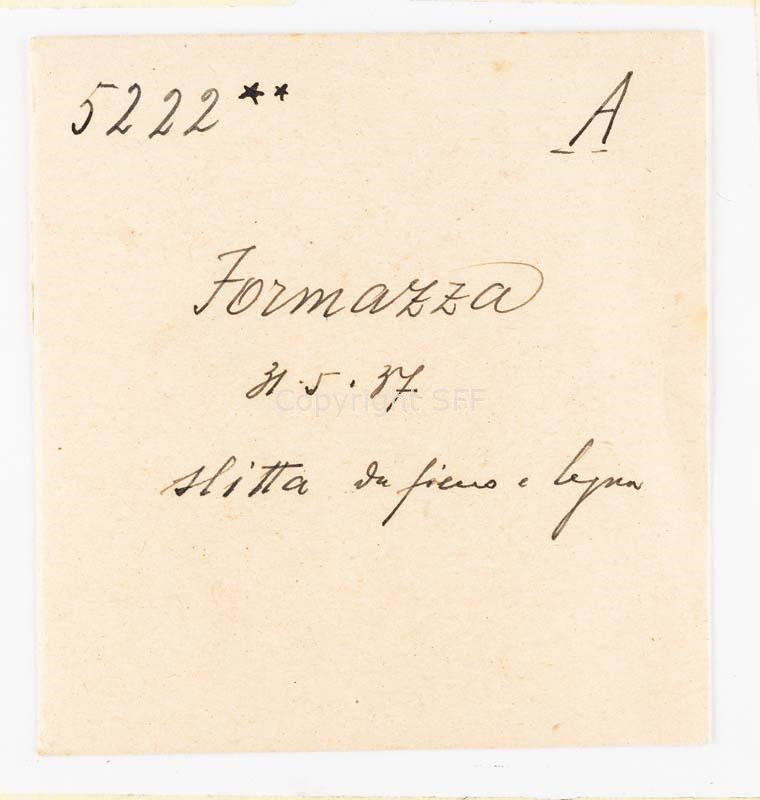 5222** A
Formazza
31.5.37.
Copyright SEF
slitta da fieno e legna